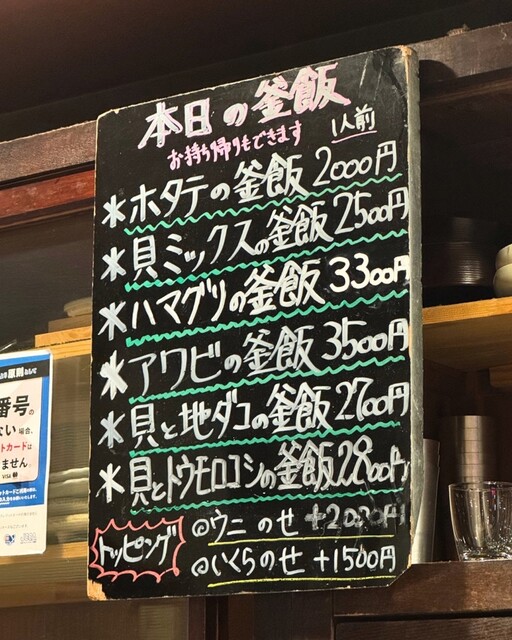 本日の釜飯
お持ち帰りもできます
1人前
＊ホタテの釜飯 2000円
＊貝ミックスの釜飯 2500円
＊ハマグリの釜飯 3300円
＊アワビの釜飯 3500円
＊貝と地ダコの釜飯 2700円
＊貝とトウモロコシの釜飯 2800円
トッピング
◎ウニ のせ +2000円
◎いくらのせ +1500円
原則
番号の
ない場合、
トカードは
ません。
VISA